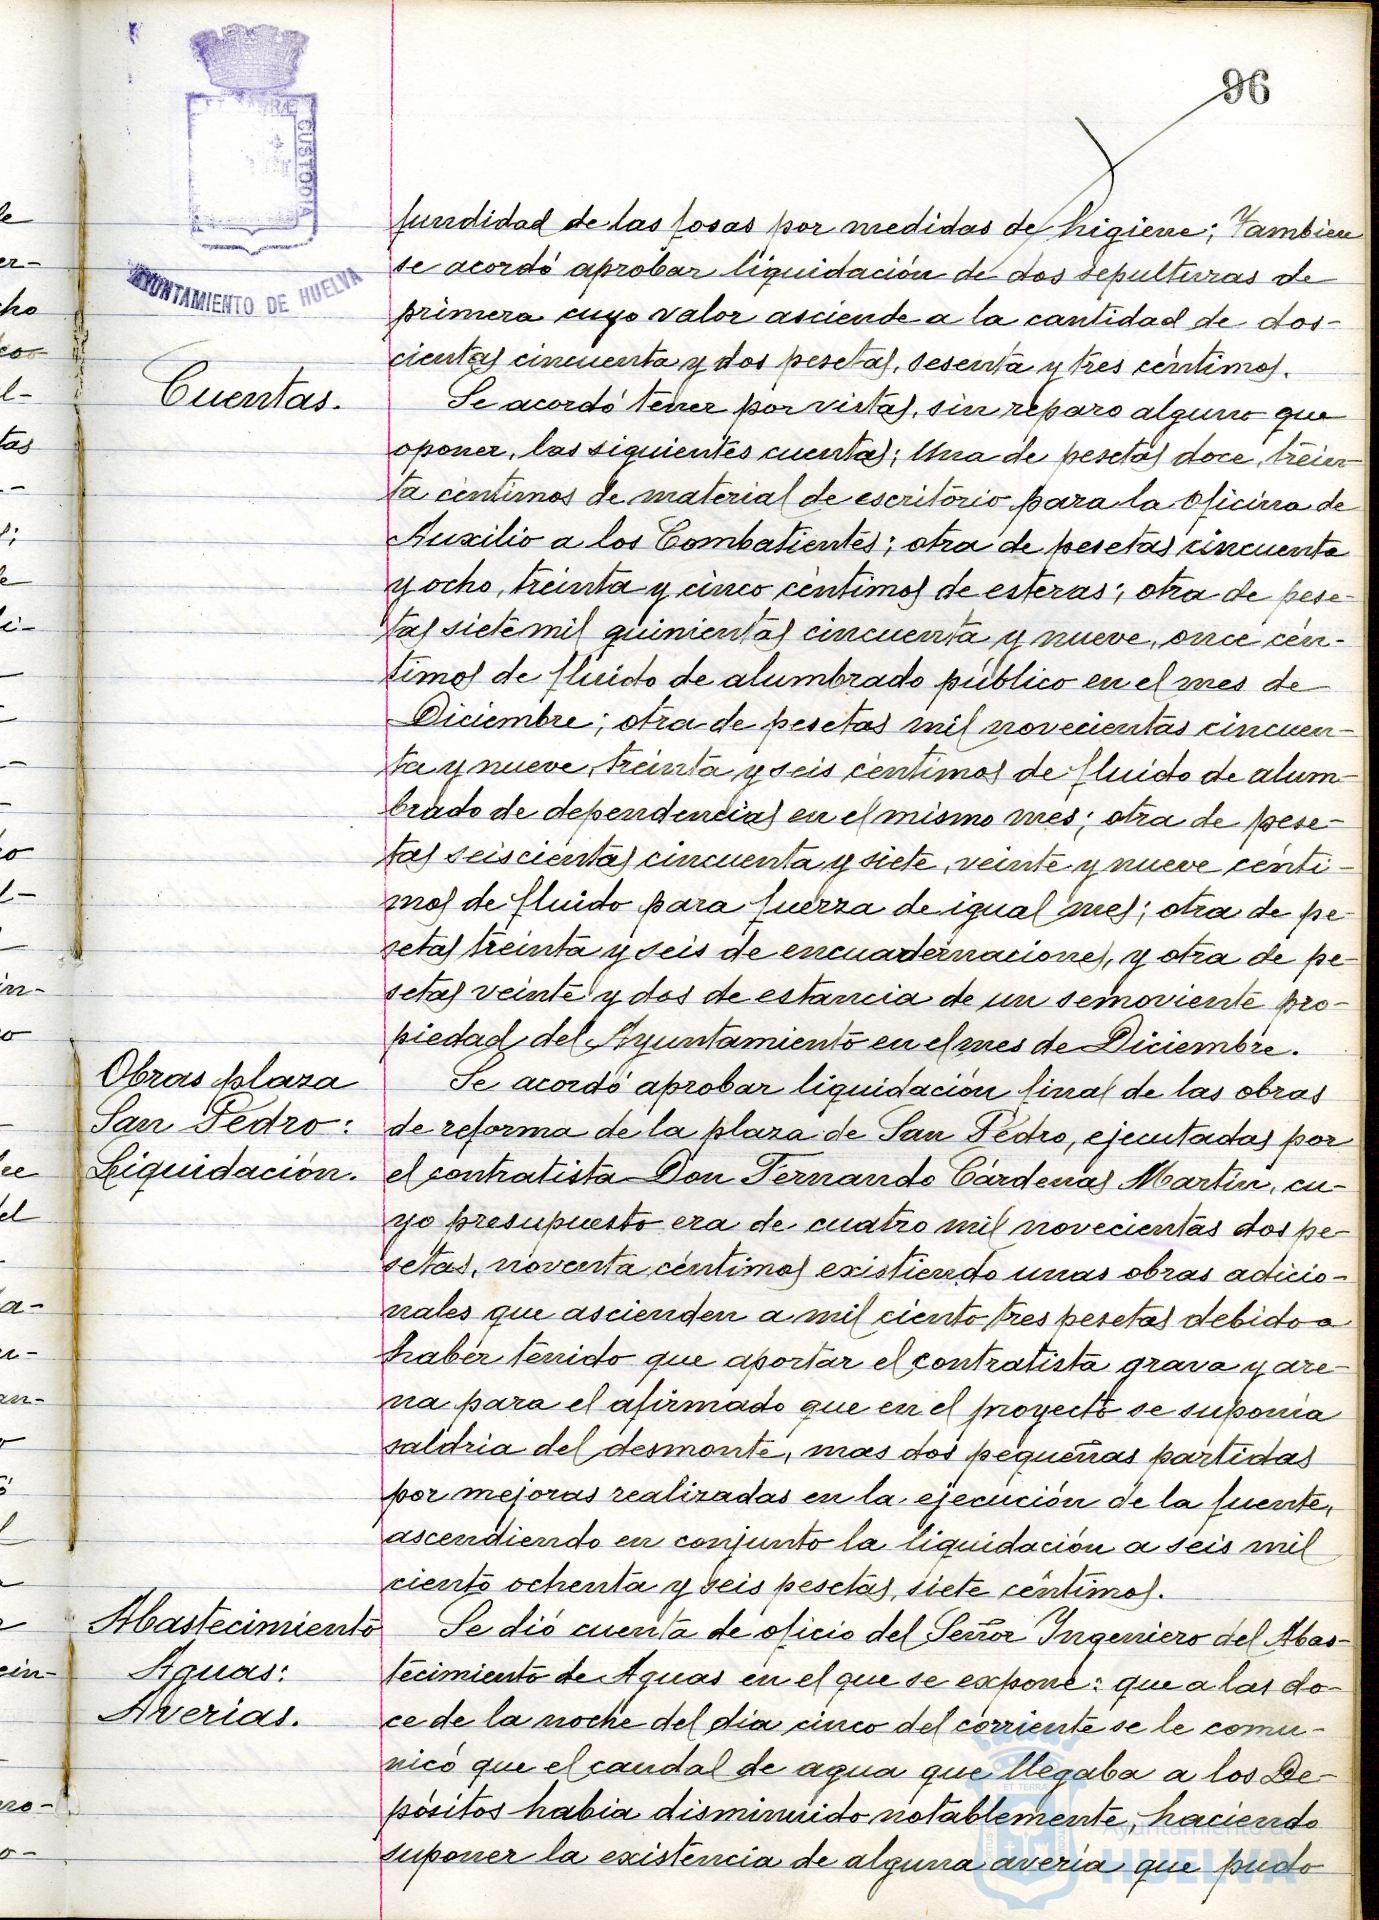 96
AYUNTAMIENTO DE HUELVA
CUSTODIA
fundidad de las fosas por medidas de higiene; Tambien
se acordó aprobar liquidación de dos sepulturas de
primera cuyo valor asciende a la cantidad de dos-
cientas cincuenta y dos pesetas, sesenta y tres céntimos.
Cuentas.
Se acordó tener por vistas, sin reparo alguno que
oponer, las siguientes cuentas; Una de pesetas doce, trein-
ta céntimos de material de escritorio para la oficina de
Auxilio a los Combatientes; otra de pesetas cincuenta
y ocho, treinta y cinco céntimos de esteras; otra de pese-
tas siete mil quinientas cincuenta y nueve, once cén-
timos de fluido de alumbrado público en el mes de
Diciembre; otra de pesetas mil novecientas cincuen-
ta y nueve, treinta y seis céntimos de fluido de alum-
brado de dependencias en el mismo mes; otra de pese-
tas seiscientas cincuenta y siete, veinte y nueve cénti-
mos de fluido para fuerza de igual mes; otra de pe-
setas treinta y seis de encuadernaciones, y otra de pe-
setas veinte y dos de estancia de un semoviente pro-
piedad del Ayuntamiento en el mes de Diciembre.
Obras plaza
San Pedro:
Liquidación.
Se acordó aprobar liquidación final de las obras
de reforma de la plaza de San Pedro, ejecutadas por
el contratista Don Fernando Cárdenas Martin, cu-
yo presupuesto era de cuatro mil novecientas dos pe-
setas, noventa céntimos existiendo unas obras adicio-
nales que ascienden a mil ciento tres pesetas debido a
haber tenido que aportar el contratista grava y are-
na para el afirmado que en el proyecto se suponía
saldria del desmonte, mas dos pequeñas partidas
por mejoras realizadas en la ejecución de la fuente,
ascendiendo en conjunto la liquidación a seis mil
ciento ochenta y seis pesetas, siete céntimos.
Abastecimiento
Aguas:
Averias.
Se dió cuenta de oficio del Señor Ingeniero del Abas-
tecimiento de Aguas en el que se expone: que a las do-
ce de la noche del día cinco del corriente se le comu-
nicó que el caudal de agua que llegaba a los De-
pósitos habia disminuido notablemente, haciendo
suponer la existencia de alguna avería que pudo
Ayuntamiento de
HUELVA